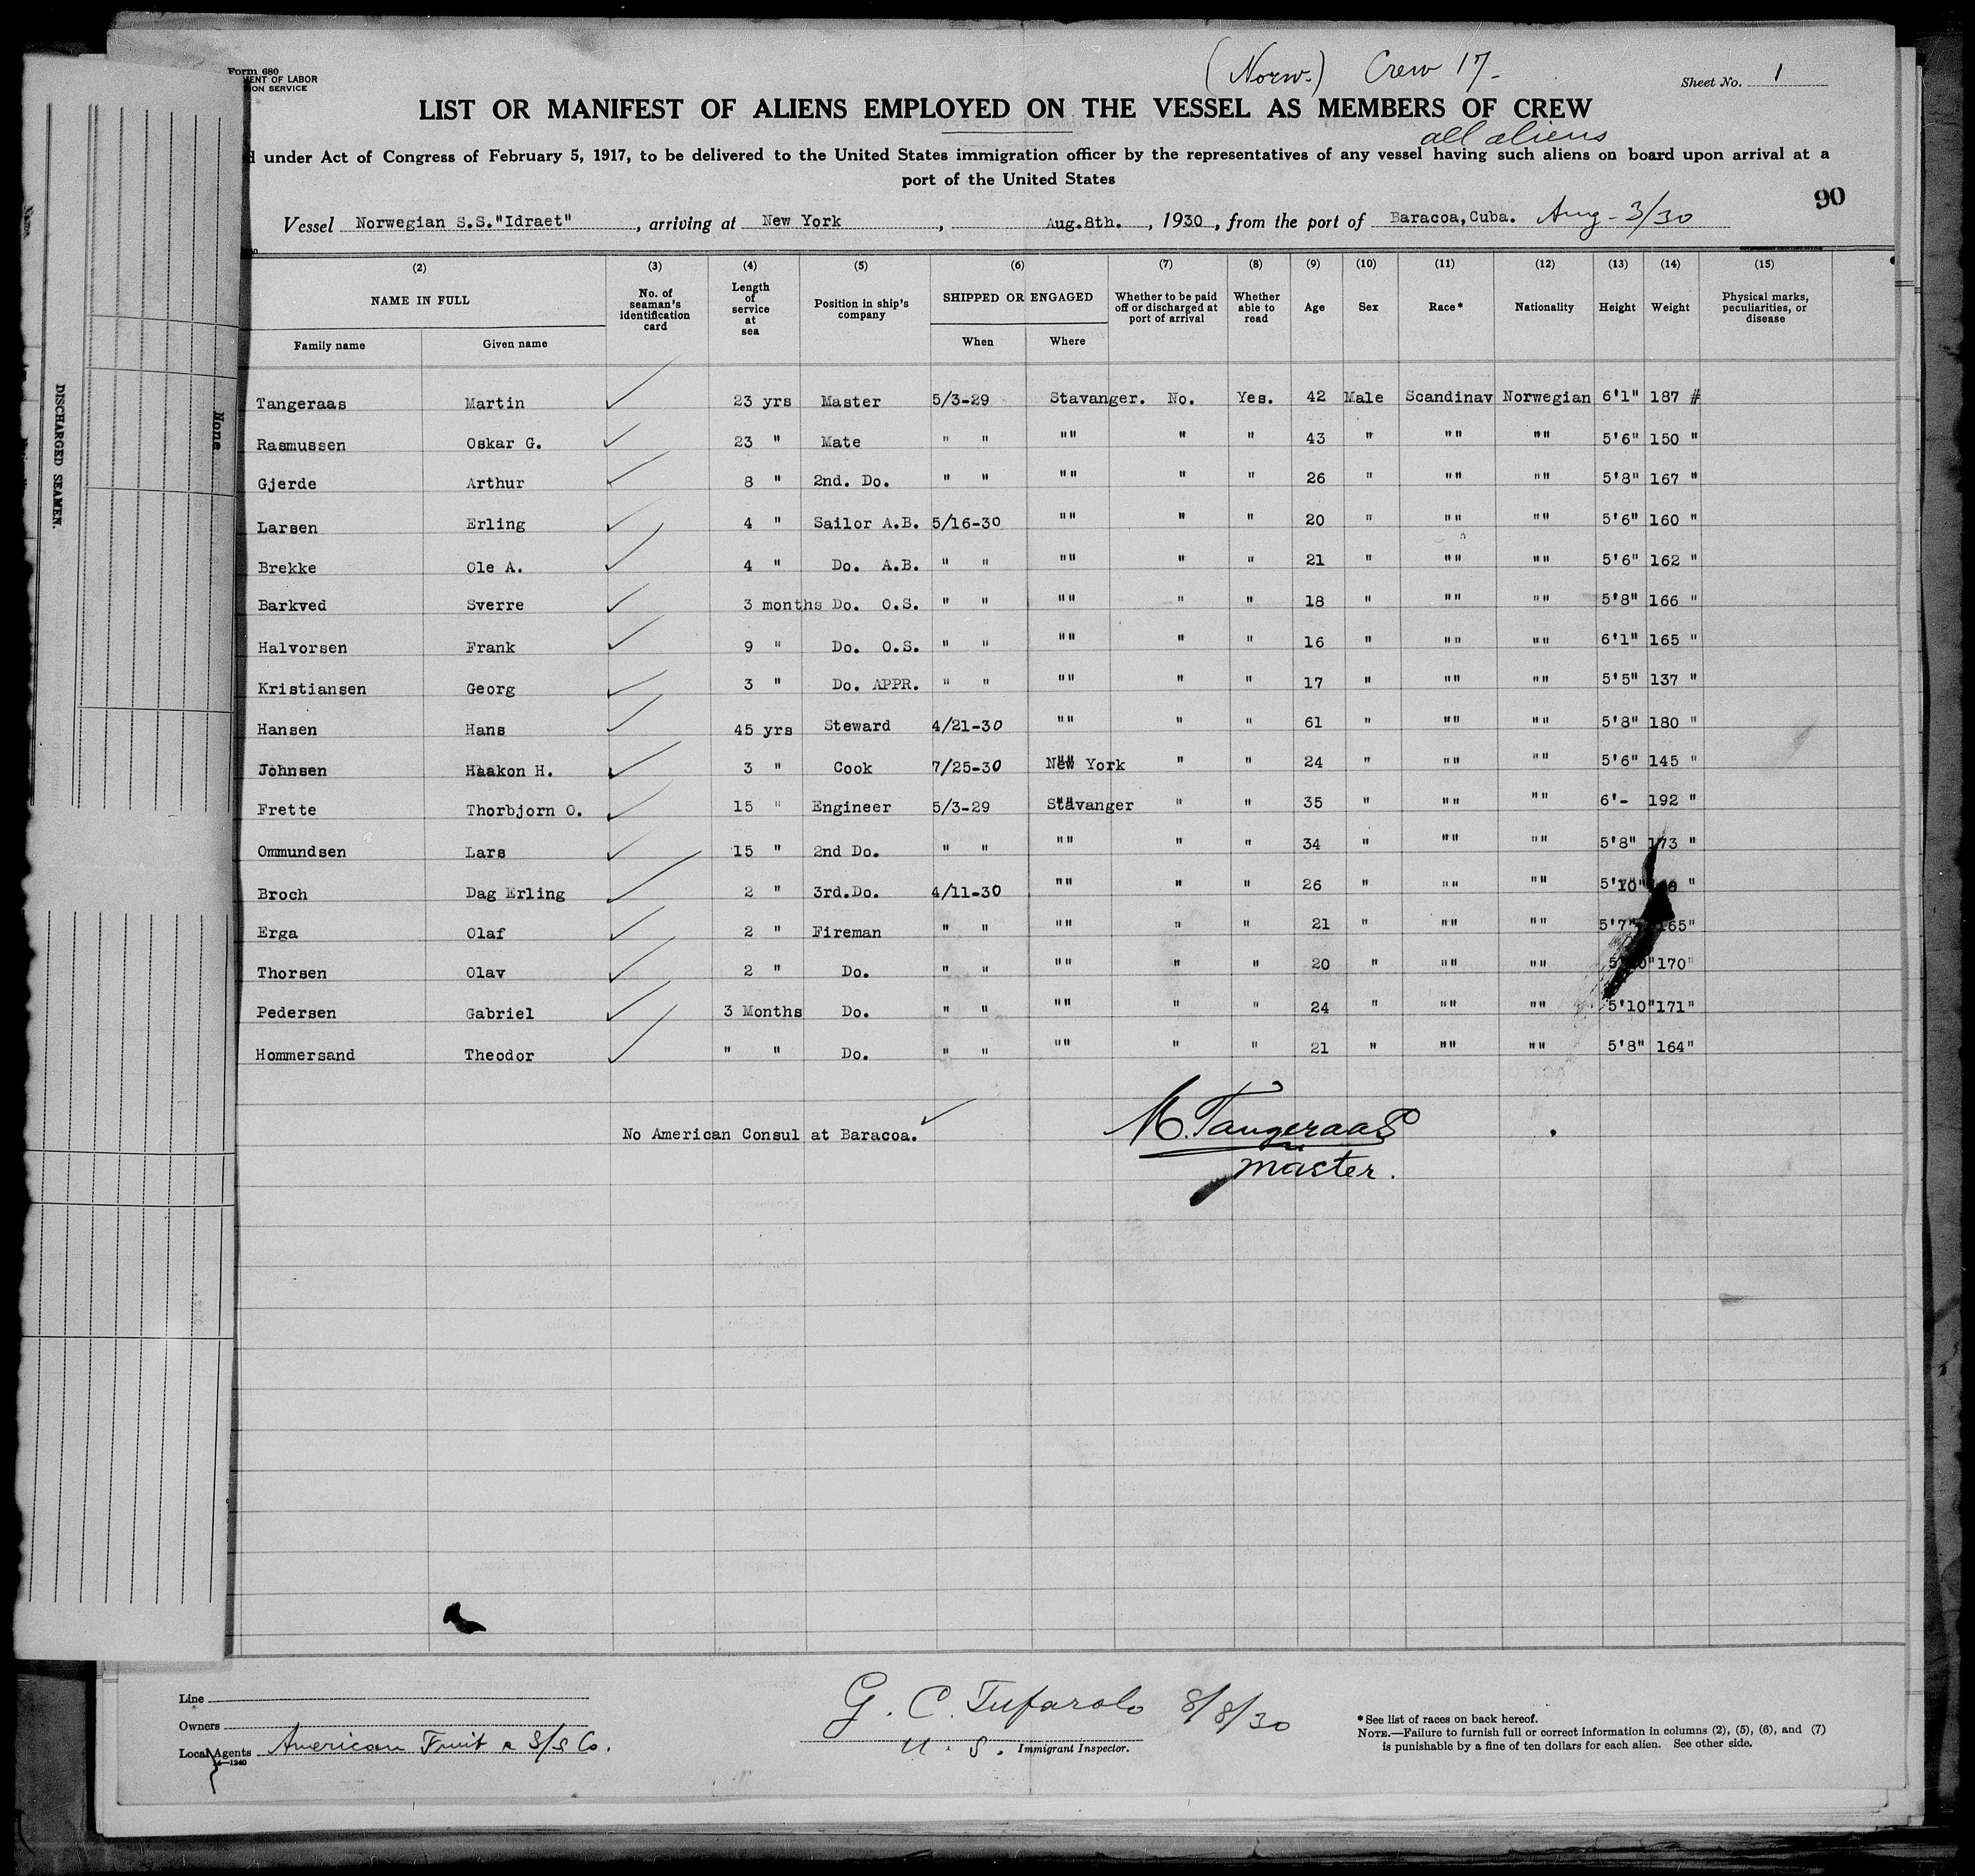 Form 680
MENT OF LABOR
ION SERVICE
(Norw.) Crew 17.
Sheet No. 1
LIST OR MANIFEST OF ALIENS EMPLOYED ON THE VESSEL AS MEMBERS OF CREW
all aliens
d under Act of Congress of February 5, 1917, to be delivered to the United States immigration officer by the representatives of any vessel having such aliens on board upon arrival at a
port of the United States
90
Vessel Norwegian S.S."Idraet", arriving at New York, Aug.8th., 1930, from the port of Baracoa,Cuba. Aug-3/30
(2) (3) (4) (5) (6) (7) (8) (9) (10) (11) (12) (13) (14) (15)
NAME IN FULL No. of seaman's identification card Length of service at sea Position in ship's company SHIPPED OR ENGAGED Whether to be paid off or discharged at port of arrival Whether able to read Age Sex Race* Nationality Height Weight Physical marks, peculiarities, or disease
Family name Given name When Where
Tangeraas Martin 23 yrs Master 5/3-29 Stavanger. No. Yes. 42 Male Scandinav Norwegian 6'1" 187 #
Rasmussen Oskar G. 23 " Mate " " "" " " 43 " "" "" 5'6" 150 "
Gjerde Arthur 8 " 2nd. Do. " " "" " " 26 " "" "" 5'8" 167 "
Larsen Erling 4 " Sailor A.B. 5/16-30 "" " " 20 " "" "" 5'6" 160 "
Brekke Ole A. 4 " Do. A.B. " " "" " " 21 " "" "" 5'6" 162 "
Barkved Sverre 3 months Do. O.S. " " "" " " 18 " "" "" 5'8" 166 "
Halvorsen Frank 9 " Do. O.S. " " "" " " 16 " "" "" 6'1" 165 "
Kristiansen Georg 3 " Do. APPR. " " "" " " 17 " "" "" 5'5" 137 "
Hansen Hans 45 yrs Steward 4/21-30 "" " " 61 " "" "" 5'8" 180 "
Johnsen Haakon H. 3 " Cook 7/25-30 New York " " 24 " "" "" 5'6" 145 "
Frette Thorbjorn O. 15 " Engineer 5/3-29 Stavanger " " 35 " "" "" 6'- 192 "
Ommundsen Lars 15 " 2nd Do. " " "" " " 34 " "" "" 5'8" 173 "
Broch Dag Erling 2 " 3rd.Do. 4/11-30 "" " " 26 " "" "" 5'10" "
Erga Olaf 2 " Fireman " " "" " " 21 " "" "" 5'7" 165"
Thorsen Olav 2 " Do. " " "" " " 20 " "" "" 170"
Pedersen Gabriel 3 Months Do. " " "" " " 24 " "" "" 5'10"171"
Hommersand Theodor " " Do. " " "" " " 21 " "" "" 5'8" 164"
No American Consul at Baracoa.
M. Tangeraas
master.
DISCHARGED SEAMEN.
None
Name
Line
Owners
Local Agents American Fruit & S/S Co.
14—1240
G. C. Tufarolo 8/8/30
U. S. Immigrant Inspector.
*See list of races on back hereof.
NOTE.—Failure to furnish full or correct information in columns (2), (5), (6), and (7)
is punishable by a fine of ten dollars for each alien. See other side.